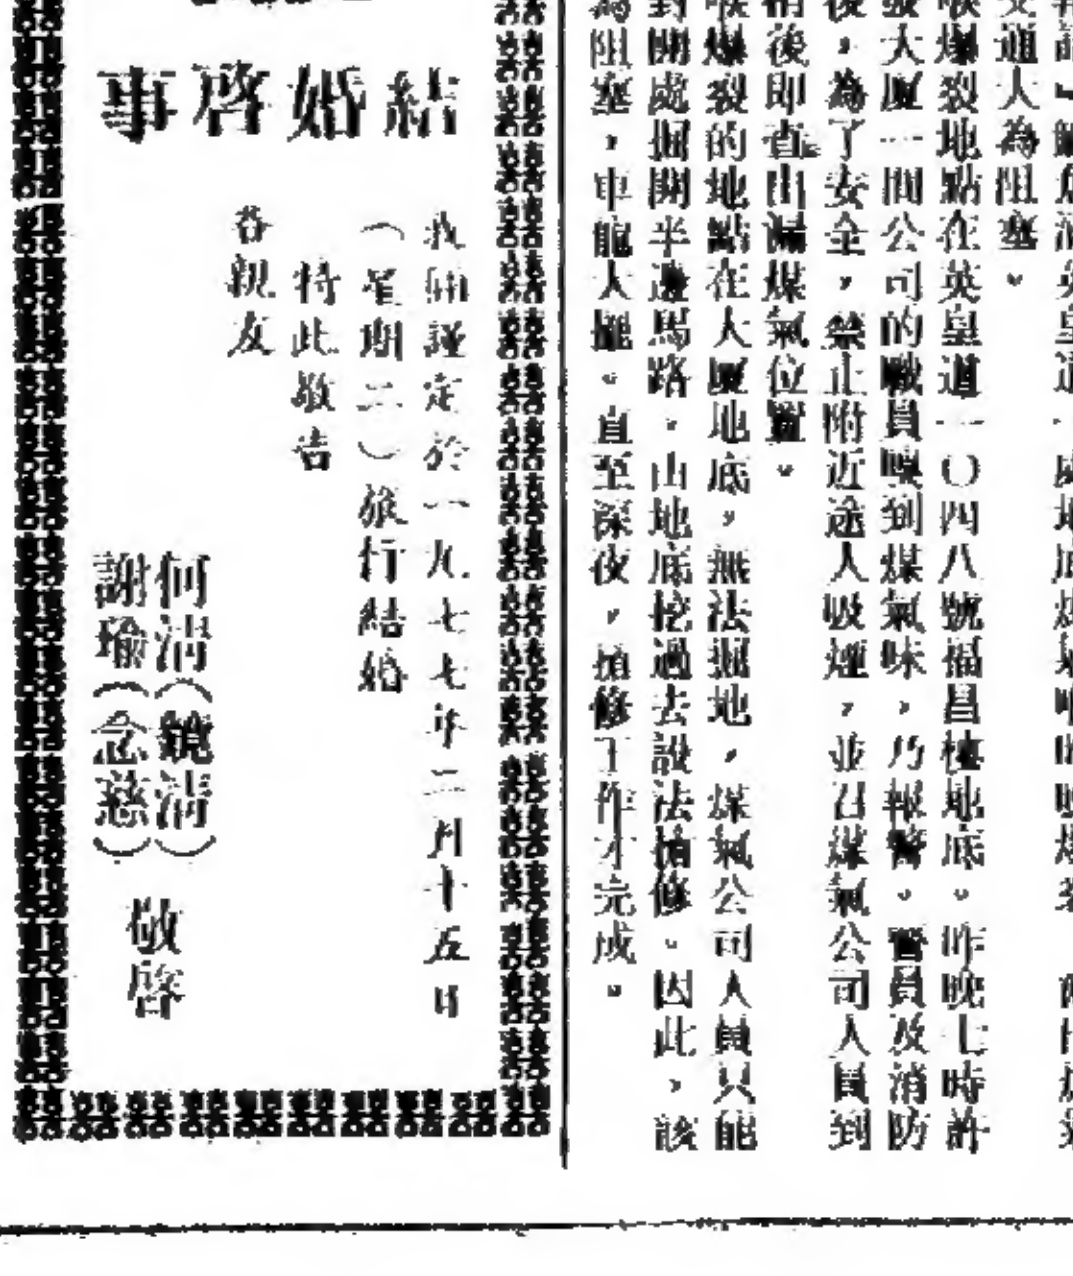 通人為阻塞。
喉爆裂地點在英皇道一〇四八號福昌樓地底。昨晚七時許
大厦一間公司的職員嗅到煤氣味,乃報警。警員及消防
後,為了安全,禁止附近途人吸煙,並召煤氣公司人員到
稍後即查出漏煤氣位置。
喉爆裂的地點在大厦地底,無法掘地,煤氣公司人員只能
對開處掘開半邊馬路,由地底挖過去設法搶修。因此,該
為阻塞,車龍大擺。直至深夜,搶修工作才完成。
結婚啓事
我倆謹定於一九七七年二月十五日
(星期二)旅行結婚
特此敬告
各親友
何清(鏡清)
謝瑜(念慈)
敬啓